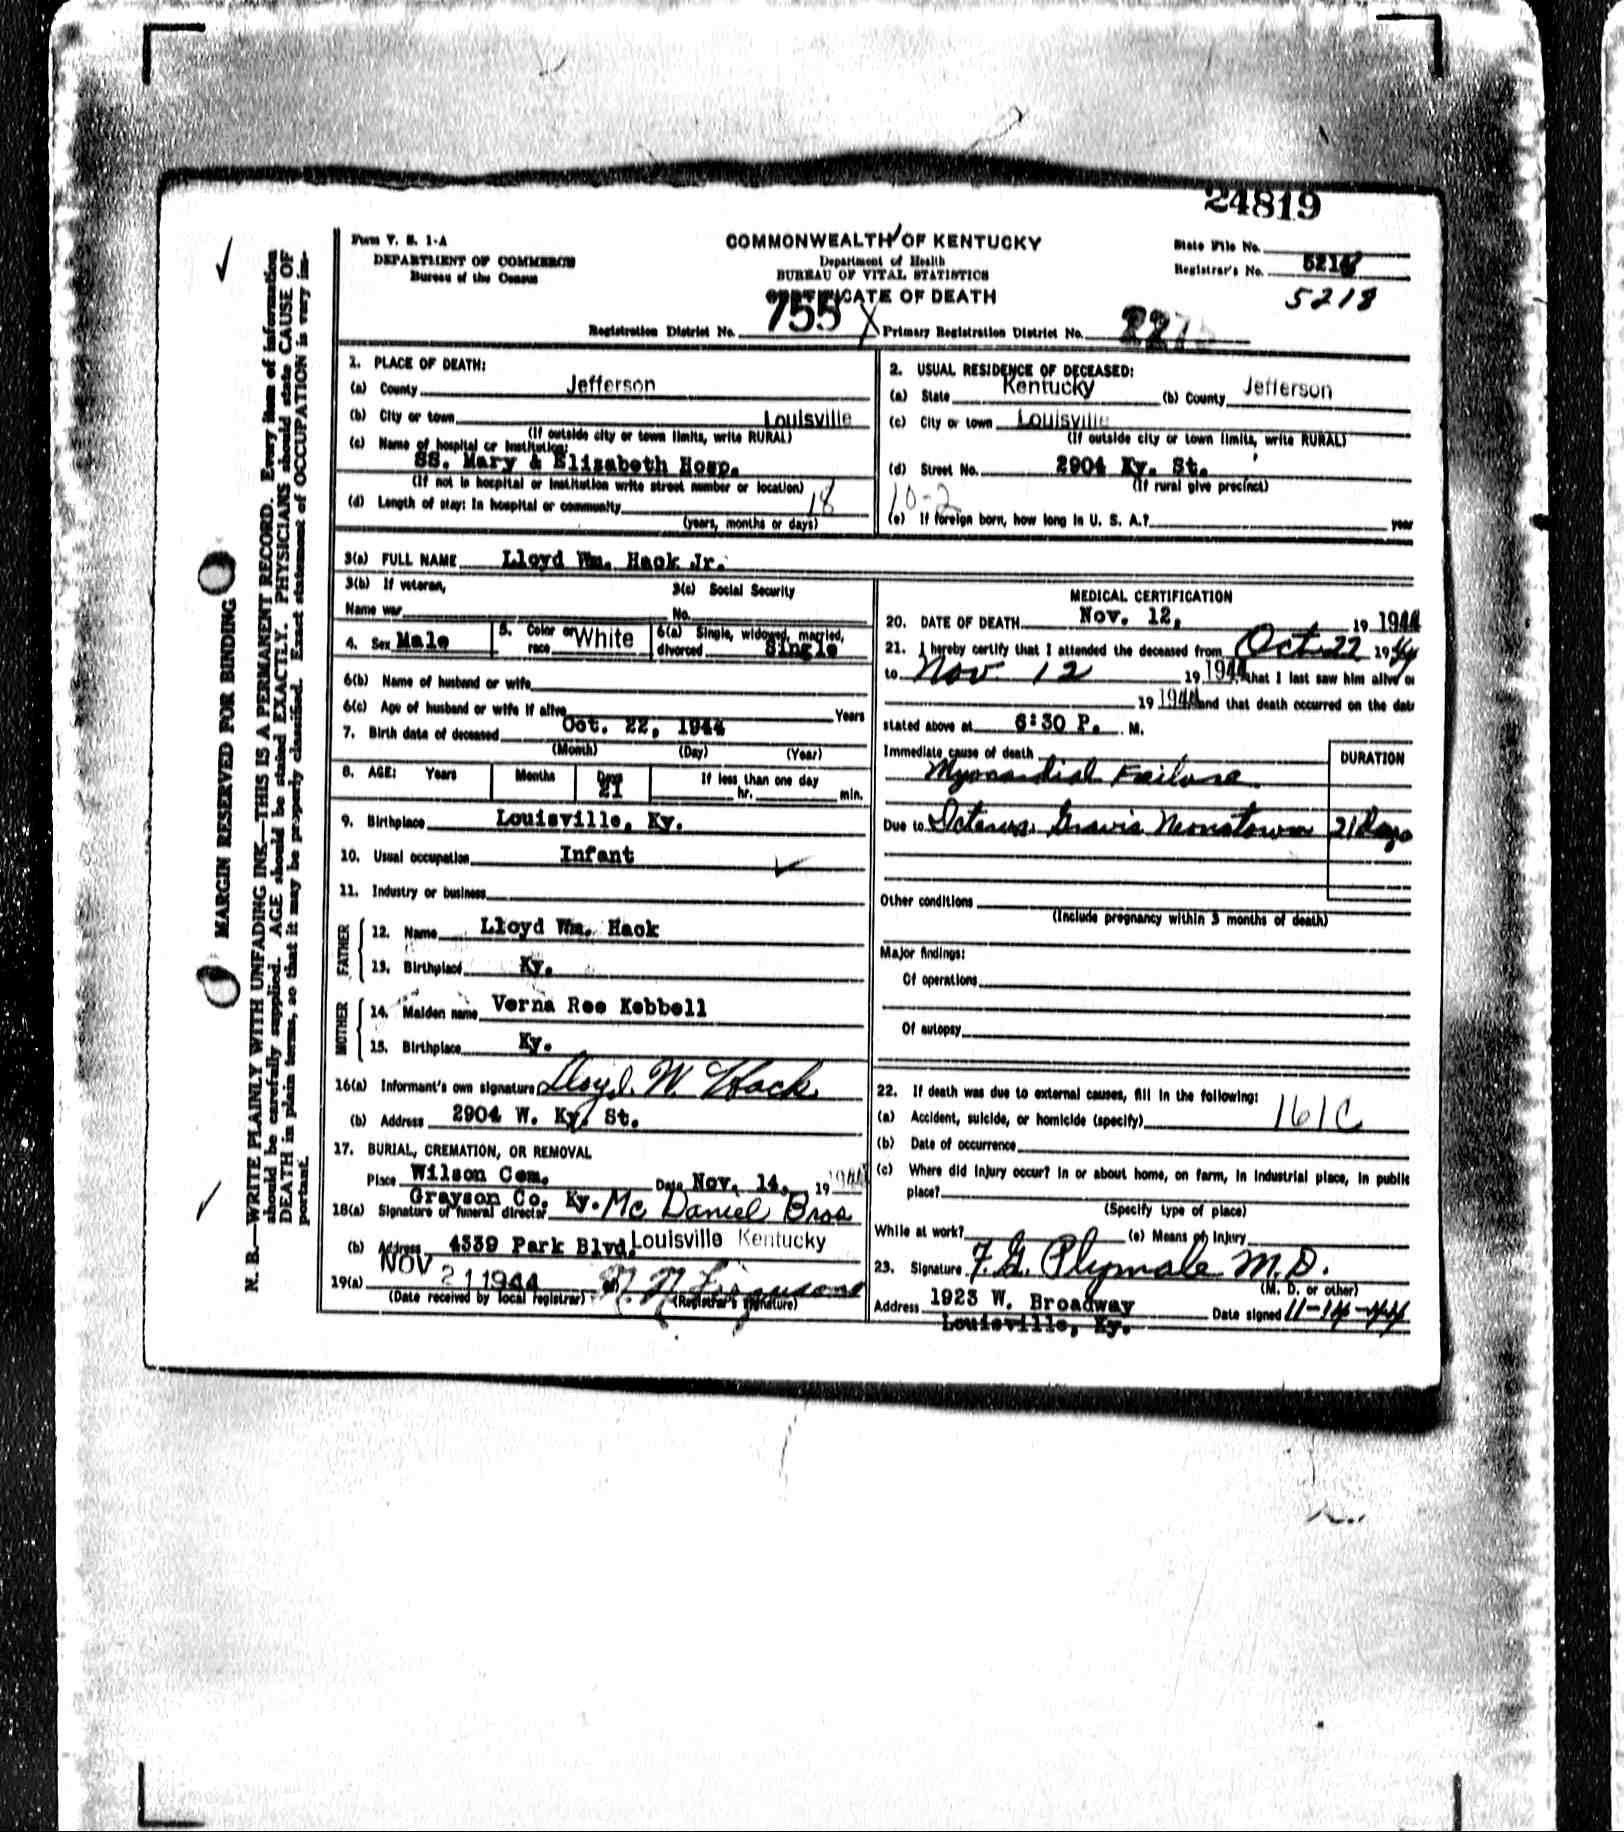 24819
Form V. S. 1-A
DEPARTMENT OF COMMERCE
Bureau of the Census
COMMONWEALTH OF KENTUCKY
Department of Health
BUREAU OF VITAL STATISTICS
CERTIFICATE OF DEATH
State File No.
Registrar's No.
5218
Registration District No. 755 X Primary Registration District No.
MARGIN RESERVED FOR BINDING
N. B.—WRITE PLAINLY WITH UNFADING INK—THIS IS A PERMANENT RECORD. Every item of information
should be carefully supplied. AGE should be stated EXACTLY. PHYSICIANS should state CAUSE OF
DEATH in plain terms, so that it may be properly classified. Exact statement of OCCUPATION is very im-
portant.
1. PLACE OF DEATH:
(a) County Jefferson
(b) City or town Louisville
(If outside city or town limits, write RURAL)
(c) Name of hospital or institution:
SS. Mary & Elizabeth Hosp.
(If not in hospital or institution write street number or location)
(d) Length of stay: In hospital or community 18
(years, months or days)
2. USUAL RESIDENCE OF DECEASED:
(a) State Kentucky (b) County Jefferson
(c) City or town Louisville
(If outside city or town limits, write RURAL)
(d) Street No. 2904 Ky. St.
(If rural give precinct)
10-2
(e) If foreign born, how long in U. S. A.? year
3(a) FULL NAME Lloyd Wm. Hack Jr.
3(b) If veteran, 3(c) Social Security
Name war No.
4. Sex Male 5. Color or race White 6(a) Single, widowed, married, divorced Single
6(b) Name of husband or wife
6(c) Age of husband or wife if alive Years
7. Birth date of deceased Oct. 22, 1944
(Month) (Day) (Year)
8. AGE: Years Months Days 21 If less than one day
hr. min.
9. Birthplace Louisville, Ky.
10. Usual occupation Infant
11. Industry or business
FATHER
12. Name Lloyd Wm. Hack
13. Birthplace Ky.
MOTHER
14. Maiden name Verna Ree Kebbell
15. Birthplace Ky.
16(a) Informant's own signature Lloyd W. Hack
(b) Address 2904 W. Ky. St.
17. BURIAL, CREMATION, OR REMOVAL
Place Wilson Cem. Date Nov. 14, 19 1944
Grayson Co. Ky.
18(a) Signature of funeral director Mc Daniel Bros
(b) Address 4339 Park Blvd. Louisville Kentucky
19(a) NOV 21 1944
(Date received by local registrar) (Registrar's signature)
MEDICAL CERTIFICATION
20. DATE OF DEATH Nov. 12, 19 1944
21. I hereby certify that I attended the deceased from Oct 22 1944
to Nov. 12 19 1944, that I last saw him alive on
19 1944 and that death occurred on the date
stated above at 6:30 P. M.
Immediate cause of death DURATION
Myocardial Failure
Due to Icterus Gravis Neonatorum 21 Days
Other conditions
(Include pregnancy within 3 months of death)
Major findings:
Of operations
Of autopsy
22. If death was due to external causes, fill in the following:
(a) Accident, suicide, or homicide (specify) 161C
(b) Date of occurrence
(c) Where did injury occur? In or about home, on farm, in industrial place, in public
place?
(Specify type of place)
While at work? (e) Means of injury
23. Signature F. G. Plymale M.D.
(M. D. or other)
Address 1923 W. Broadway Date signed 11-14-44
Louisville, Ky.